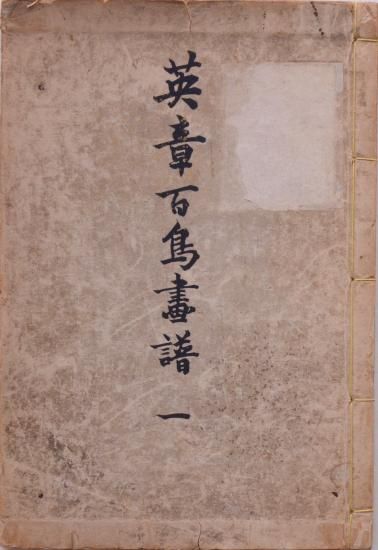 英章百鳥畫譜 一